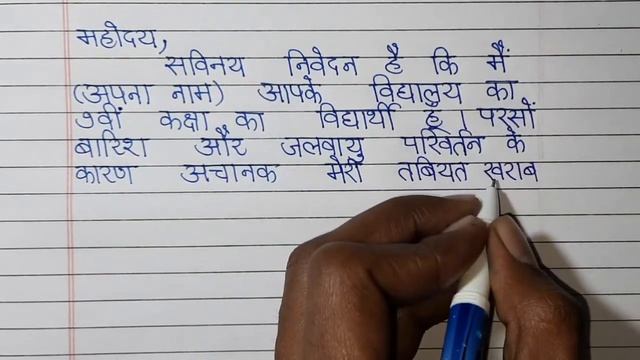 महोदय,
सविनय निवेदन है कि मैं
(अपना नाम) आपके विद्यालय का
७वीं कक्षा का विद्यार्थी हूँ । परसों
बारिश और जलवायु परिवर्तन के
कारण अचानक मेरी तबियत खराब